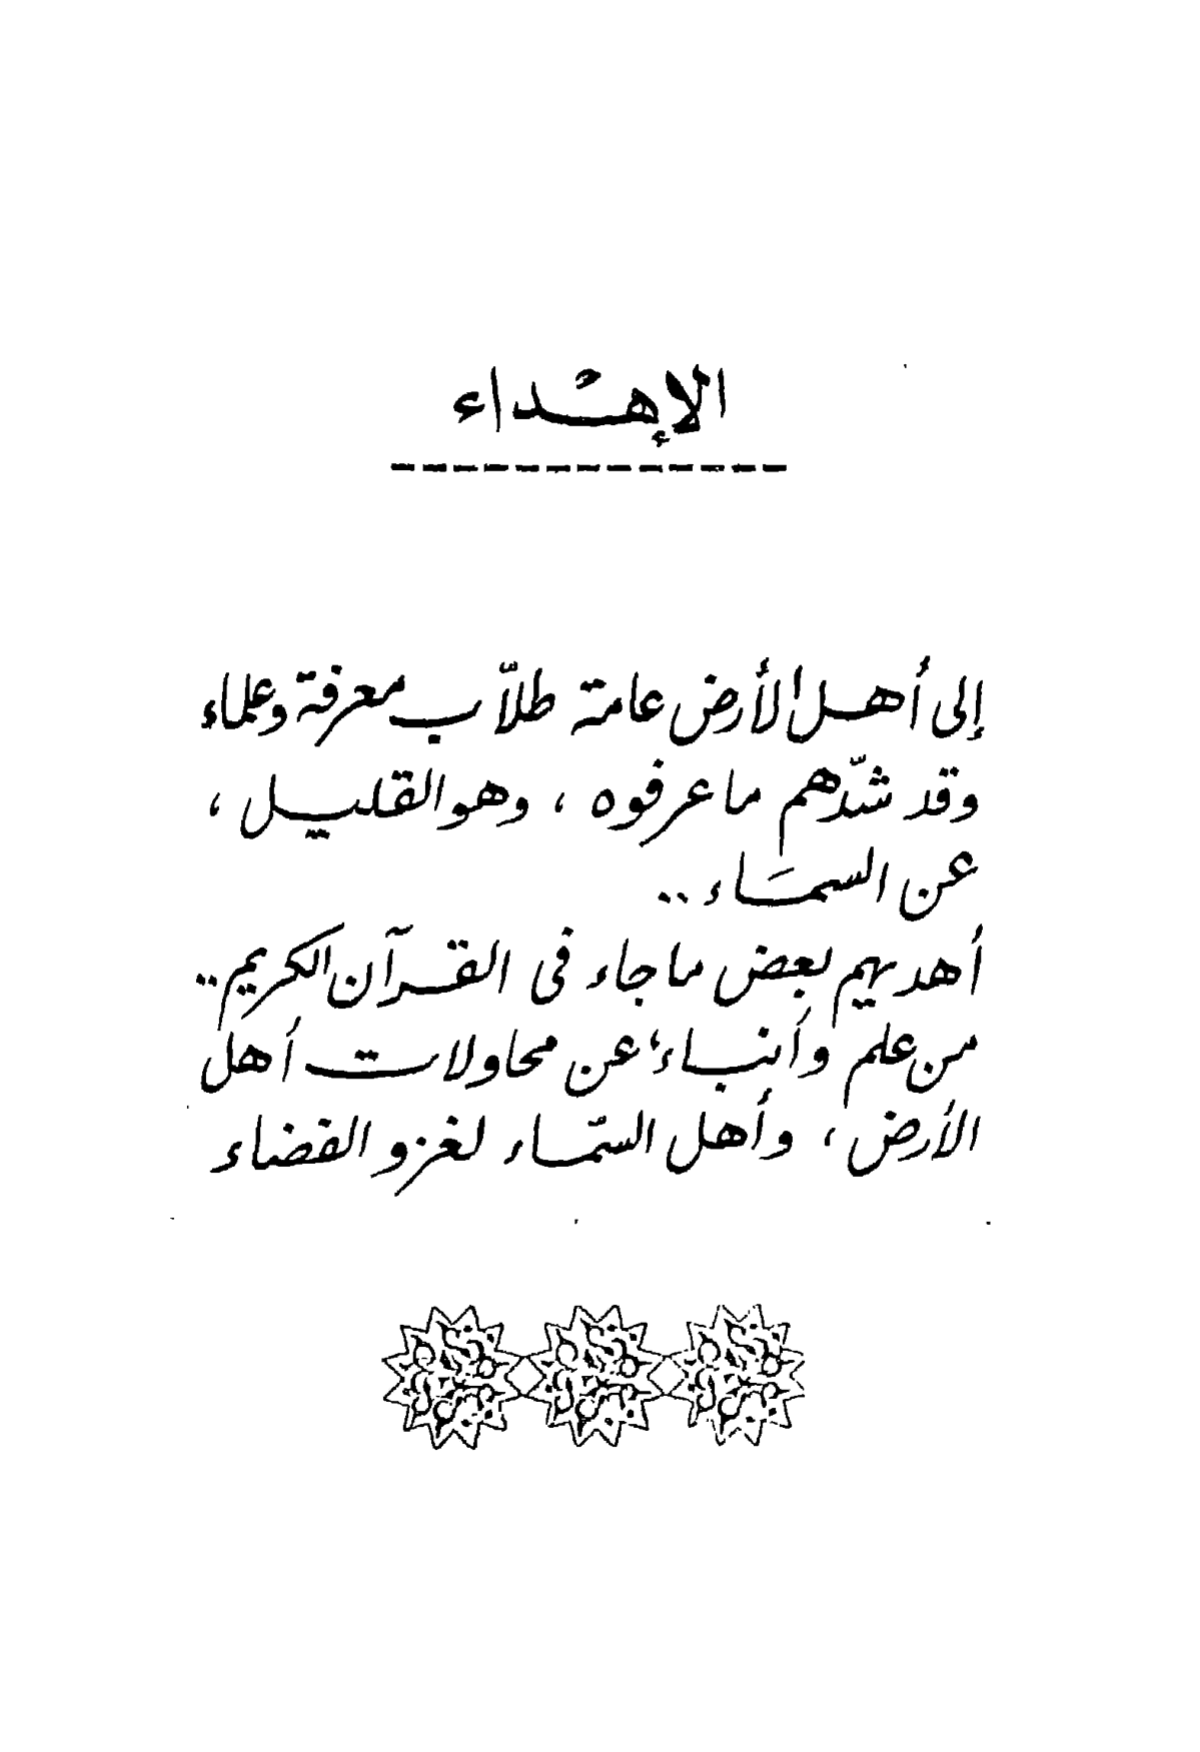 الإهْداء
إلى أهل الأرض عامة طلاّب معرفة وعلماء
وقد شدّهم ما عرفوه ، وهو القليل ،
عن السمَاء ..
أهديهم بعض ما جاء فى القرآن الكريم ..
من علم وأنباء ؛ عن محاولات أهل
الأرض ، وأهل السّماء لغزو الفضاء